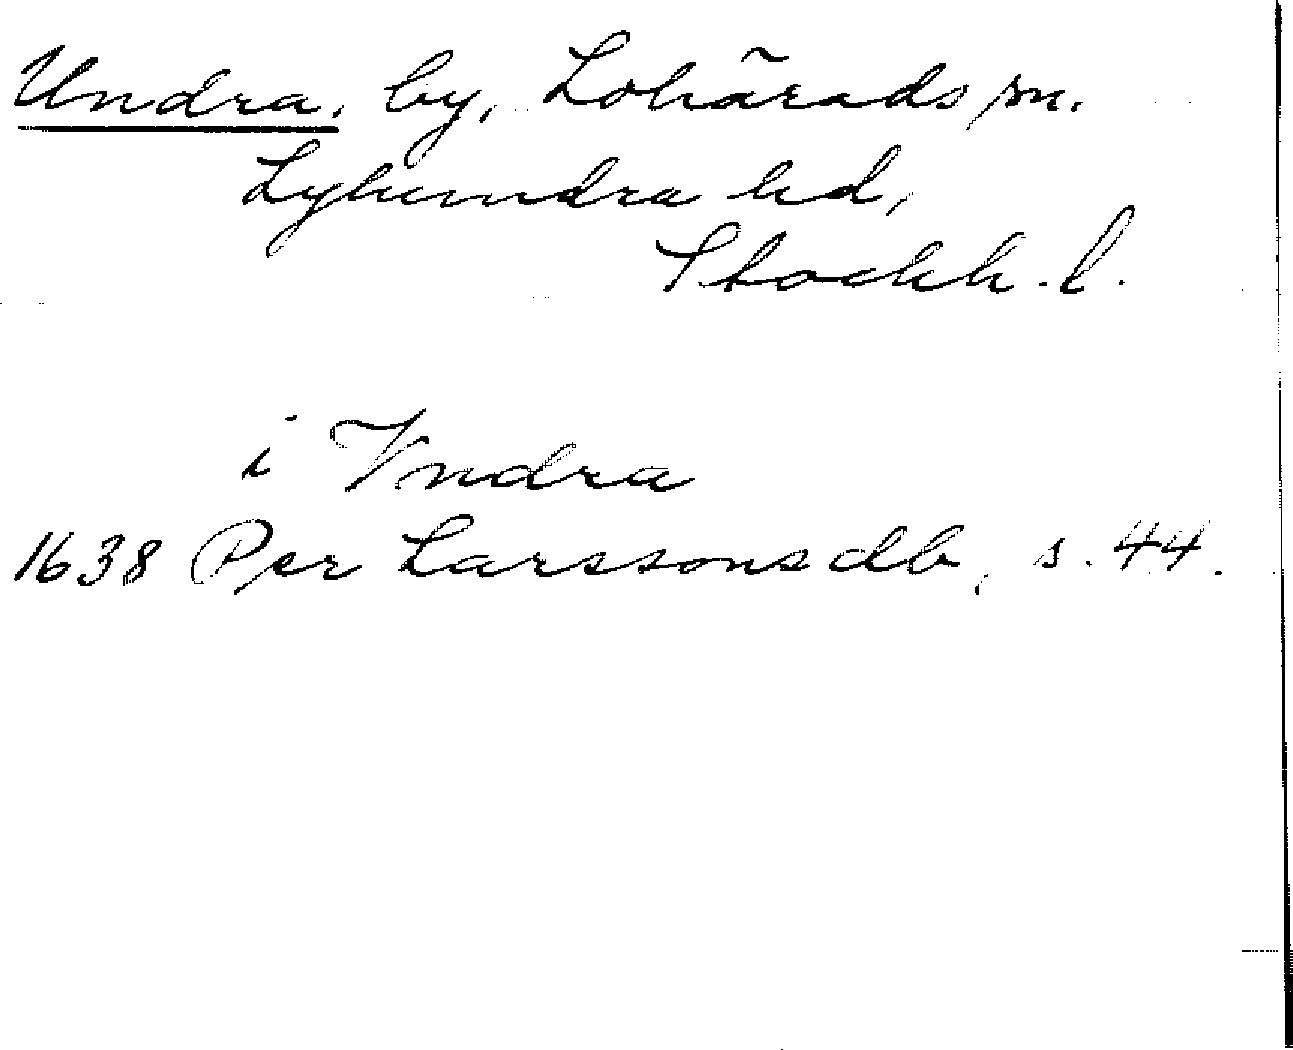 Undra, by, Lohärads sn.
Lyhundra hd,
Stockh. l.
i Vndra
1638 Per Larssons db, s. 44.